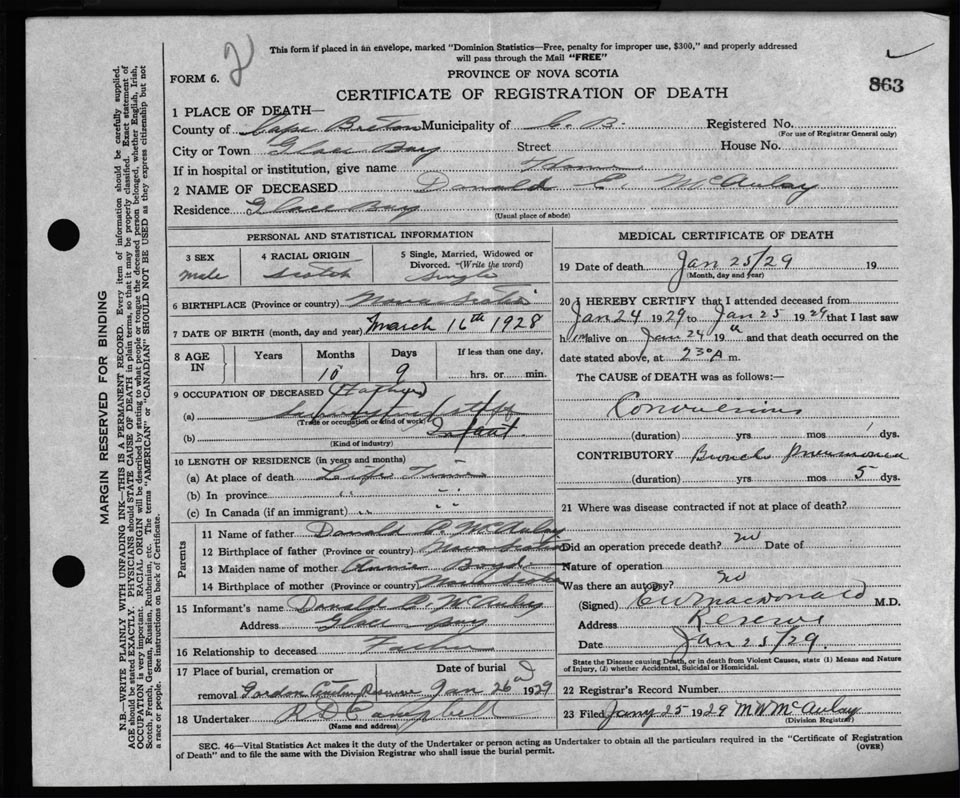 2
This form if placed in an envelope, marked "Dominion Statistics—Free, penalty for improper use, $300," and properly addressed
will pass through the Mail "FREE"
FORM 6.
PROVINCE OF NOVA SCOTIA
863
CERTIFICATE OF REGISTRATION OF DEATH
1 PLACE OF DEATH—
County of Cape Breton Municipality of C. B. Registered No.
(For use of Registrar General only)
City or Town Glace Bay Street House No.
If in hospital or institution, give name Home
2 NAME OF DECEASED Donald C. McAulay
Residence Glace Bay
(Usual place of abode)
PERSONAL AND STATISTICAL INFORMATION
3 SEX
male
4 RACIAL ORIGIN
Scotch
5 Single, Married, Widowed or
Divorced. —(Write the word)
Single
6 BIRTHPLACE (Province or country) Nova Scotia
7 DATE OF BIRTH (month, day and year) March 16th 1928
8 AGE IN
Years Months Days If less than one day,
10 9 hrs. or min.
9 OCCUPATION OF DECEASED (Father)
(a)
(Trade or occupation or kind of work)
(b) Infant.
(Kind of industry)
10 LENGTH OF RESIDENCE (in years and months)
(a) At place of death Life Time
(b) In province " "
(c) In Canada (if an immigrant) " "
Parents
11 Name of father Donald C. McAulay
12 Birthplace of father (Province or country) Nova Scotia
13 Maiden name of mother Annie Boyd
14 Birthplace of mother (Province or country) Nova Scotia
15 Informant's name Donald C McAulay
Address Glace Bay
16 Relationship to deceased Father
17 Place of burial, cremation or Date of burial
removal Gordon Reserve Jan 26 1929
18 Undertaker R D Campbell
(Name and address)
MEDICAL CERTIFICATE OF DEATH
19 Date of death Jan 25/29 19
(Month, day and year)
20 I HEREBY CERTIFY that I attended deceased from
Jan 24 1929 to Jan 25 1929 that I last saw
him alive on Jan 24th 19 and that death occurred on the
date stated above, at 230 A m.
The CAUSE of DEATH was as follows:—
Convulsions
(duration) yrs. mos 1 dys.
CONTRIBUTORY Broncho Pneumonia
(duration) yrs. mos 5 dys.
21 Where was disease contracted if not at place of death?
Did an operation precede death? no Date of
Nature of operation
Was there an autopsy? no
(Signed) MacDonald M.D.
Address Reserve
Date Jan 25/29
State the Disease causing Death, or in death from Violent Causes, state (1) Means and Nature
of Injury, (2) whether Accidental, Suicidal or Homicidal.
22 Registrar's Record Number
23 Filed Jany 25 1929 M W McAulay
(Division Registrar)
SEC. 46—Vital Statistics Act makes it the duty of the Undertaker or person acting as Undertaker to obtain all the particulars required in the "Certificate of Registration
of Death" and to file the same with the Division Registrar who shall issue the burial permit.
(OVER)
MARGIN RESERVED FOR BINDING
N.B.—WRITE PLAINLY WITH UNFADING INK—THIS IS A PERMANENT RECORD. Every item of information should be carefully supplied.
AGE should be stated EXACTLY. PHYSICIANS should STATE CAUSE OF DEATH in plain terms, so that it may be properly classified. Exact statement of
OCCUPATION is very important. RACIAL ORIGIN will be described by stating to what people or tongue the deceased person belonged, whether English, Irish,
Scotch, French, German, Russian, Ruthenian, etc. The terms "AMERICAN" or "CANADIAN" SHOULD NOT BE USED as they express citizenship but not
a race or people. See instructions on back of Certificate.